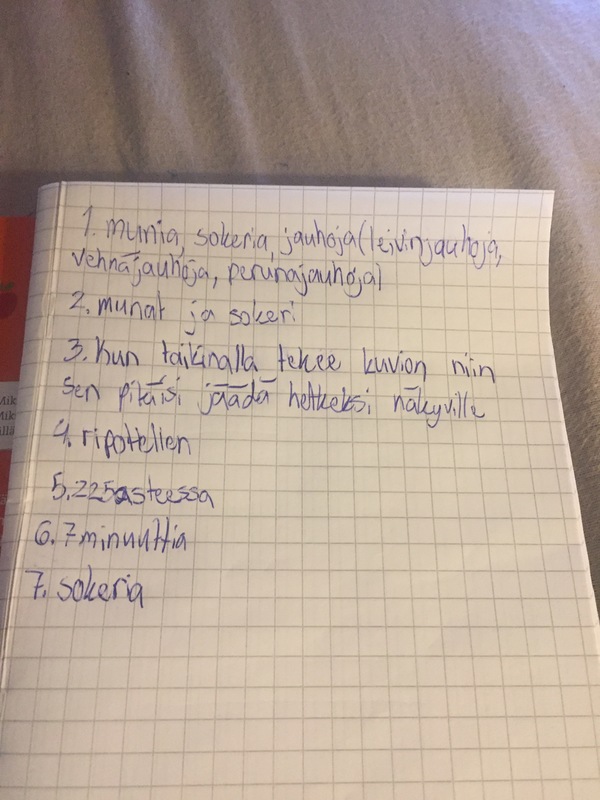 1. munia, sokeria, jauhoja (leivinjauhoja,
vehnäjauhoja, perunajauhoja)
2. munat ja sokeri
3. kun taikinalla tekee kuvion niin
sen pitäisi jäädä hetkeksi näkyville
4. ripotellen
5. 225 asteessa
6. 7 minuuttia
7. sokeria
Mik
Mik
illä